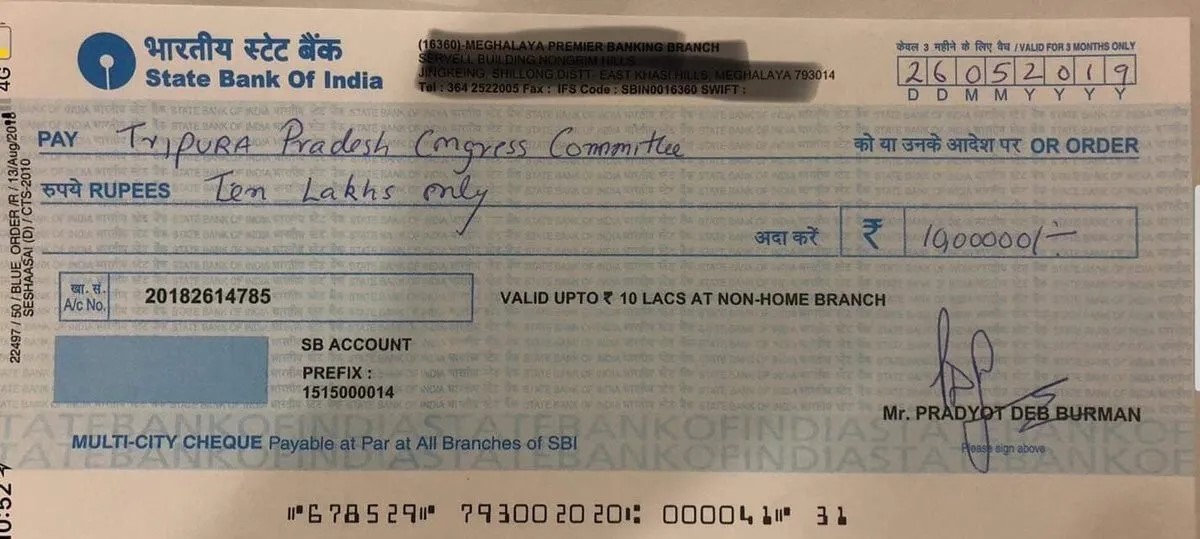 4G
10:52
भारतीय स्टेट बैंक
State Bank Of India
(16360)-MEGHALAYA PREMIER BANKING BRANCH
SERVELL BUILDING NONGRIM HILLS
JINGKEING, SHILLONG,DISTT- EAST KHASI HILLS, MEGHALAYA 793014
Tel : 364 2522005 Fax : IFS Code : SBIN0016360 SWIFT :
केवल 3 महीने के लिए वैध / VALID FOR 3 MONTHS ONLY
26052019
D D M M Y Y Y Y
PAY TRIPURA Pradesh Congress Committee को या उनके आदेश पर OR ORDER
रुपये RUPEES Ten Lakhs only
अदा करें ₹ 10,00000/-
खा. सं. A/c No. 20182614785
VALID UPTO ₹ 10 LACS AT NON-HOME BRANCH
SB ACCOUNT
PREFIX :
1515000014
Mr. PRADYOT DEB BURMAN
Please sign above
MULTI-CITY CHEQUE Payable at Par at All Branches of SBI
STATEBANKOFINDIASTATEBANKOF
⑈678529⑈ 793002020⑆ 000041⑈ 31
22497 / 50 / BLUE_ORDER /R / 13/Aug/2018
SESHAASAI (D) / CTS-2010